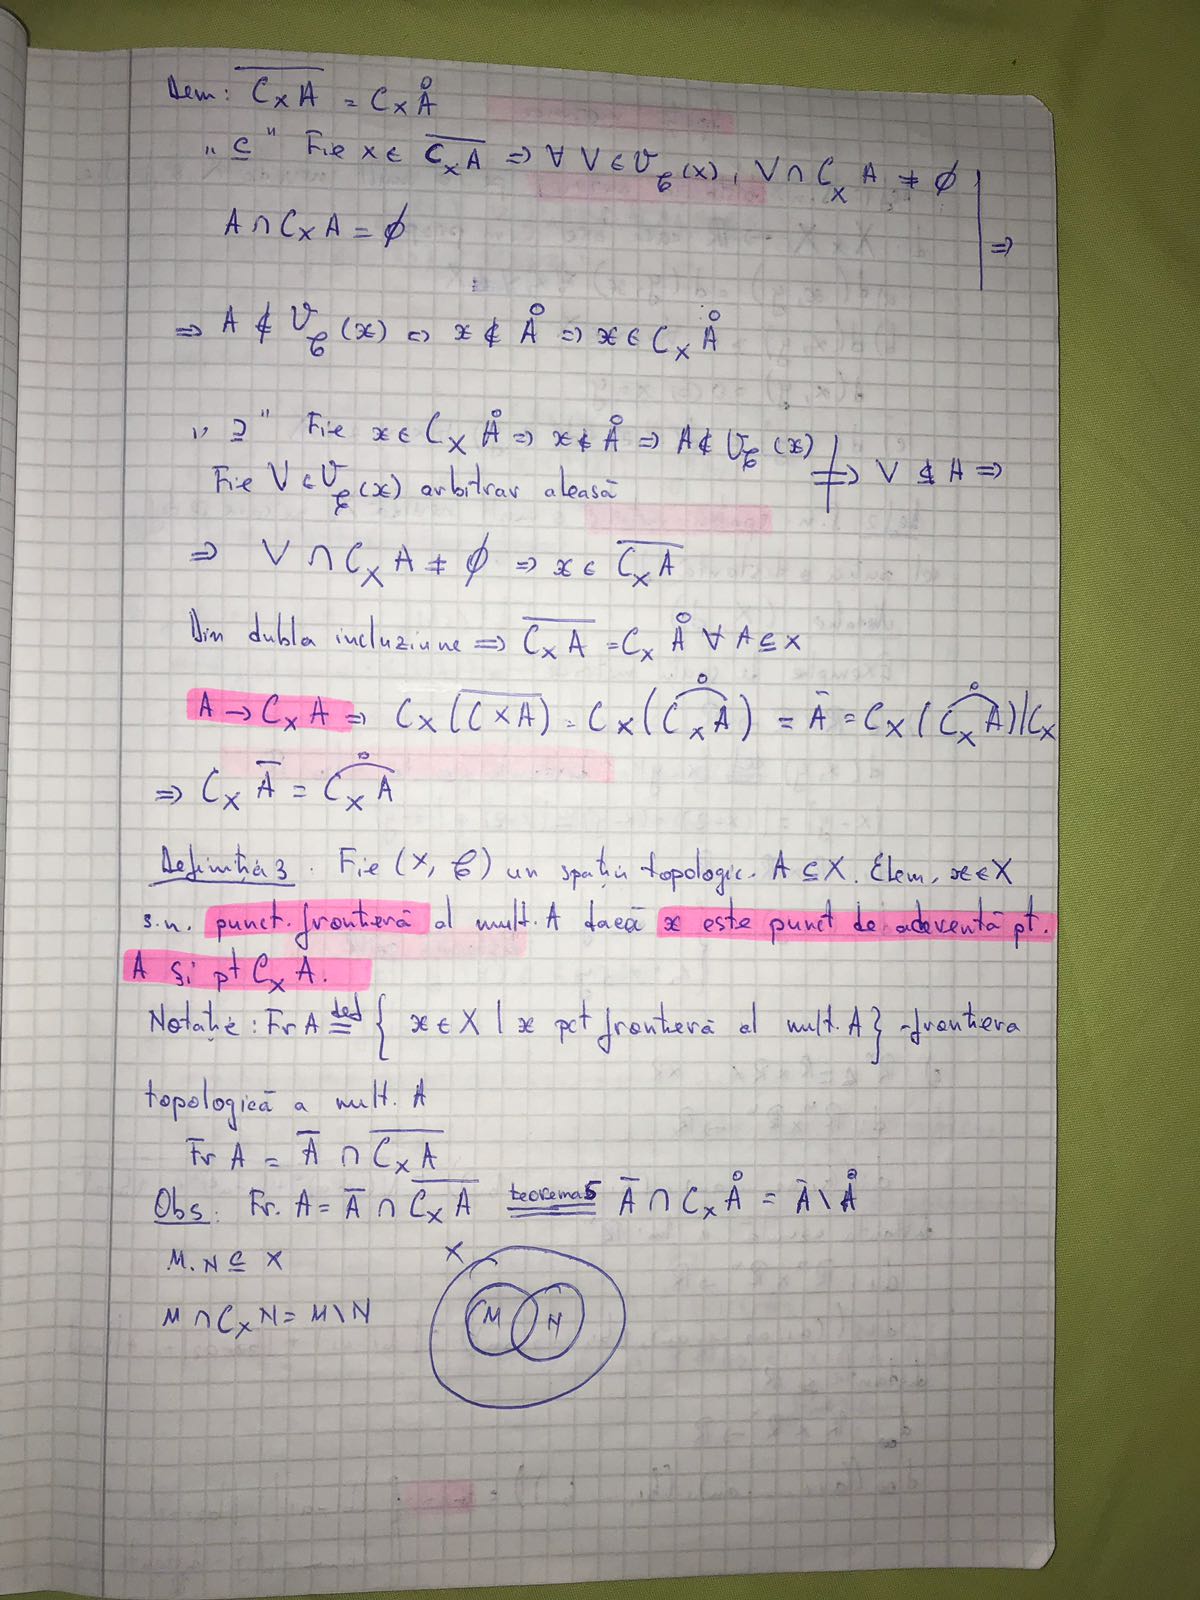 Dem: \overline{C_X A} = C_X Å
„⊆" Fie x ∈ \overline{C_X A} ⇒ ∀ V ∈ 𝒱_𝒞(x), V ∩ C_X A ≠ ∅
A ∩ C_X A = ∅ | ⇒
⇒ A ∉ 𝒱_𝒞(x) ⇒ x ∉ Å ⇒ x ∈ C_X Å
„⊇" Fie x ∈ C_X Å ⇒ x ∉ Å ⇒ A ∉ 𝒱_𝒞(x) | ⇒ V ⊈ A ⇒
Fie V ∈ 𝒱_𝒞(x) arbitrar aleasă
⇒ V ∩ C_X A ≠ ∅ ⇒ x ∈ \overline{C_X A}
Din dubla incluziune ⇒ \overline{C_X A} = C_X Å ∀ A ⊆ X
A → C_X A ⇒ C_X(\overline{C_X A}) = C_X(\overset{o}{\overgroup{C_X A}}) = Ā = C_X(\overset{o}{\overgroup{C_X A}}) | C_X
⇒ C_X Ā = \overset{o}{\overgroup{C_X A}}
Definiția 3. Fie (X, 𝒞) un spațiu topologic. A ⊆ X. Elem. x ∈ X
s.n. punct frontieră al mult. A dacă x este punct de aderență pt.
A și pt C_X A.
Notație: Fr A \overset{def}{=} { x ∈ X | x pct frontieră al mult. A } - frontiera
topologică a mult. A
Fr A = Ā ∩ \overline{C_X A}
Obs: Fr. A = Ā ∩ \overline{C_X A} \overset{teorema 5}{=} Ā ∩ C_X Å = Ā \ Å
M, N ⊆ X
X
M ∩ C_X N = M \ N
M N